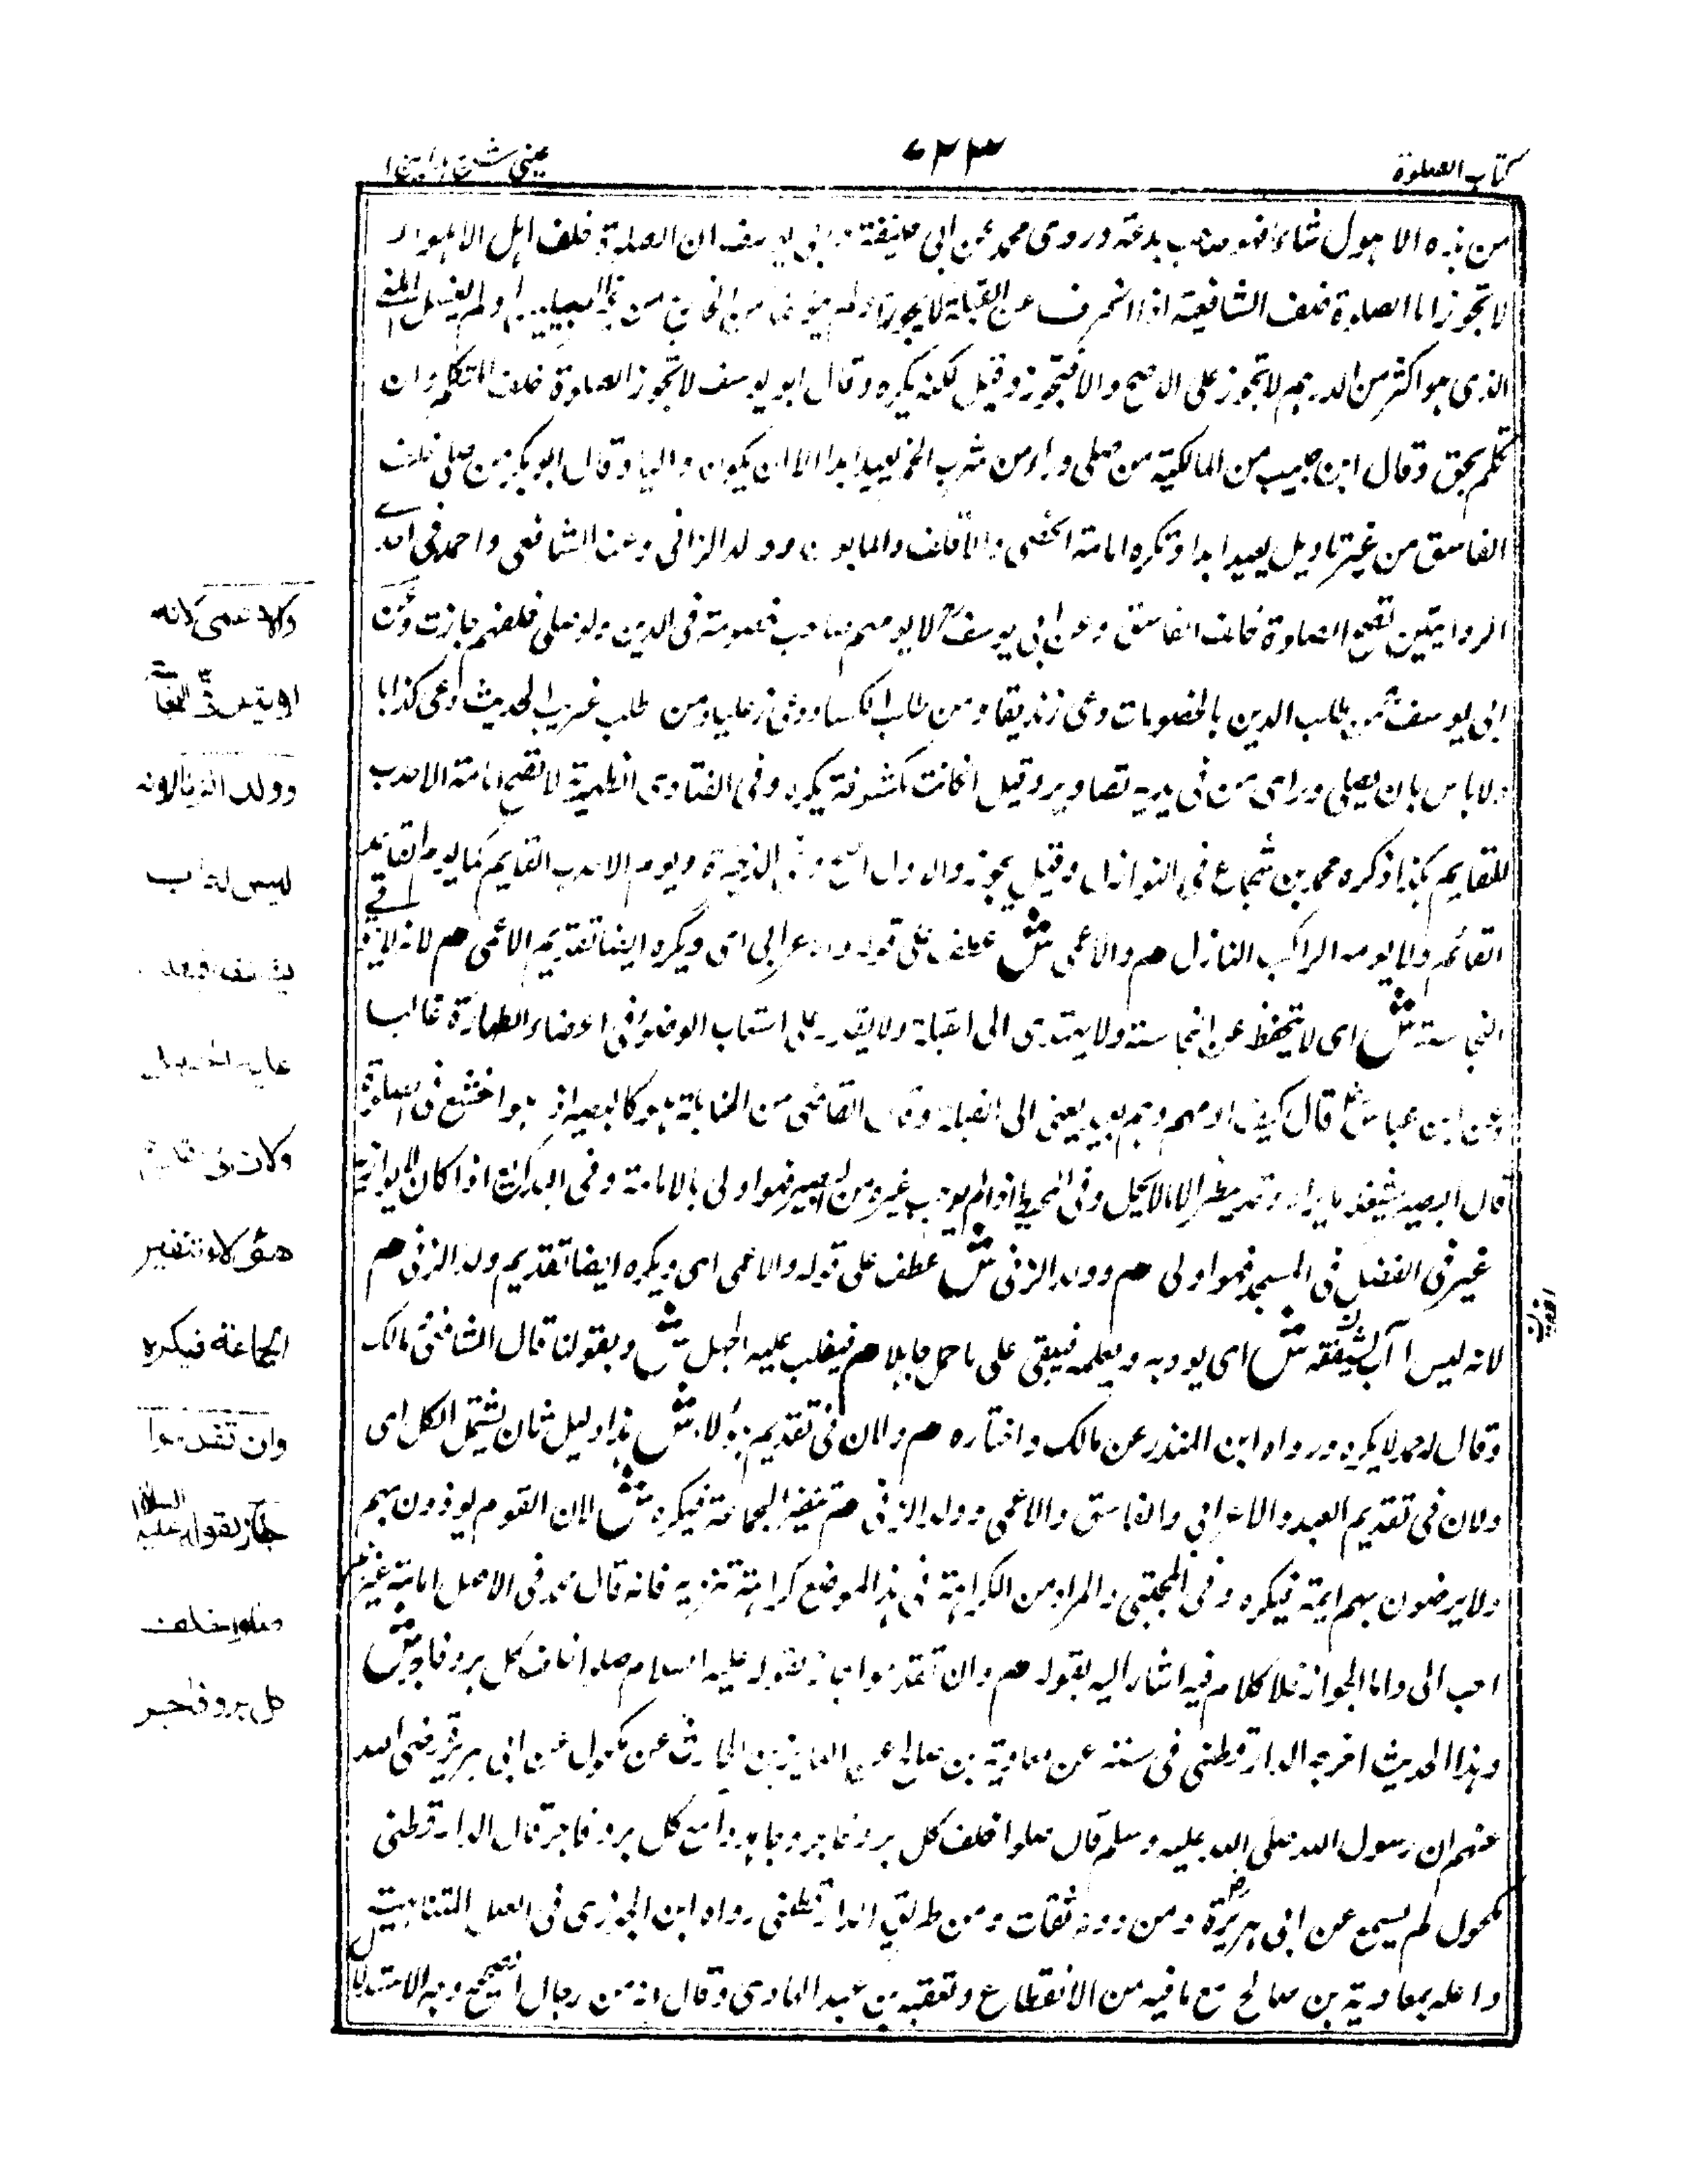 كتاب الصلوة
٧٢٣
عينى شرح هداية ج ١
من هذه الاصول شاء فهو صاحب بدعة وروى محمد عن ابى حنيفة وابى يوسف ان الصلوة خلف اهل الاهواء
لا تجوز اما الصلوة خلف الشافعية اذا انحرف عن القبلة لا يجوز او لم يتوضأ من الخارج من غير السبيلين او لم يغسل المنى
الذى هو اكثر من الدرهم لا تجوز على الاصح والا فتجوز وقيل لكنه يكره وقال ابو يوسف لا تجوز الصلوة خلف المتكلم وان
تكلم بحق وقال ابن حبيب من المالكية من صلى وراء من شرب الخمر يعيد ابدا الا ان يكون واليا وقال ابو بكر من صلى خلف
الفاسق من غير تاويل يعيد ابدا وتكره امامة الخصى والاقلف والمابون وولد الزانى وعن الشافعى واحمد فى احدى
الروايتين تصح الصلوة خلف الفاسق وعن ابى يوسف لا يومهم صاحب خصومة فى الدين ولو صلى خلفهم جازت وعن
ابى يوسف من طلب الدين بالخصومات دعى زنديقا ومن طلب ومن طلب غريب الحديث دعى كذابا
ولا باس بان يصلى وراى من فى يديه تصاوير وقيل ان كانت مكشوفة يكره وفى الفتاوى الظهيرية لا تصح امامة الاحدب
للقايم هكذا ذكره محمد بن شجاع فى النوازل وقيل يجوز والاول اصح وفى الذخيرة ويوم الاحدب القايم كما يوم القاعد
القائم ولا يومه الراكب النازل هم والاعمى ش عطف على قوله والاعرابى اى ويكره ايضا تقديم الاعمى هم لانه لا يتوقى
النجاسة ش اى لا يتحفظ عن النجاسة ولا يهتدى الى القبلة ولا يقدر على استيعاب الوضوء فى اعضاء الطهارة غالبا
وعن ابن عباس قال كيف اومهم وهم يعنى الى القبلة وقال القاضى من الحنابلة هو كالبصير اذ هو اخشع فى الصلوة
قال البصير وفى المحيط اذا لم يوجد غيره من البصير فهو اولى بالامامة وفى البدائع اذا كان لا يوازيه
غيره فى الفضل فى المسجد فهو اولى هم وولد الزنى ش عطف على قوله والاعمى اى ويكره ايضا تقديم ولد الزنى هم
لانه ليس له اب يشفقه ش اى يودبه ويعلمه فيبقى على جاهلا هم فيغلب عليه الجهل ش وبقولنا قال الشافعى ومالك
وقال احمد لا يكره ورواه ابن المنذر عن مالك واختاره هم ولان فى تقديم هؤلاء ش هذا دليل ثان يشتمل الكل اى
ولان فى تقديم العبد والاعرابى والفاسق والاعمى وولد الزنى هم تنفير الجماعة فيكره ش لان القوم يوذون بهم
ولا يرضون بهم ايمة فيكره وفى المجتبى والمراد من الكراهة فى هذا الموضع كراهة تنزيه فانه قال محمد فى الاصل امامة غيرهم
احب الى واما الجواز فلا كلام فيه اشار اليه بقوله هم وان تقدموا جاز لقوله عليه السلام صلوا خلف كل بر وفاجر ش
وهذا الحديث اخرجه الدارقطنى فى سننه عن معاوية بن صالح عن العلاء بن الحارث عن مكحول عن ابى هريرة رضى الله
عنهم ان رسول الله صلى الله عليه وسلم قال صلوا خلف كل بر وفاجر وجاهدوا مع كل بر وفاجر قال الدارقطنى
مكحول لم يسمع عن ابى هريرة ومن دونه ثقات ومن طريق الدارقطنى رواه ابن الجوزى فى العلل المتناهية
واعله بمعاوية بن صالح مع ما فيه من الانقطاع وتعقبه بن عبد الهادى وقال انه من رجال الصحيح وجه الاستدلال
والاعمى لانه
لا يتوقى النجاسة
وولد الزنا لانه
ليس له اب
يشفقه فيغلب
عليه الجهل
ولان فى تقديم
هؤلاء تنفير
الجماعة فيكره
وان تقدموا
جاز لقوله عليه السلام
صلوا خلف
كل بر وفاجر